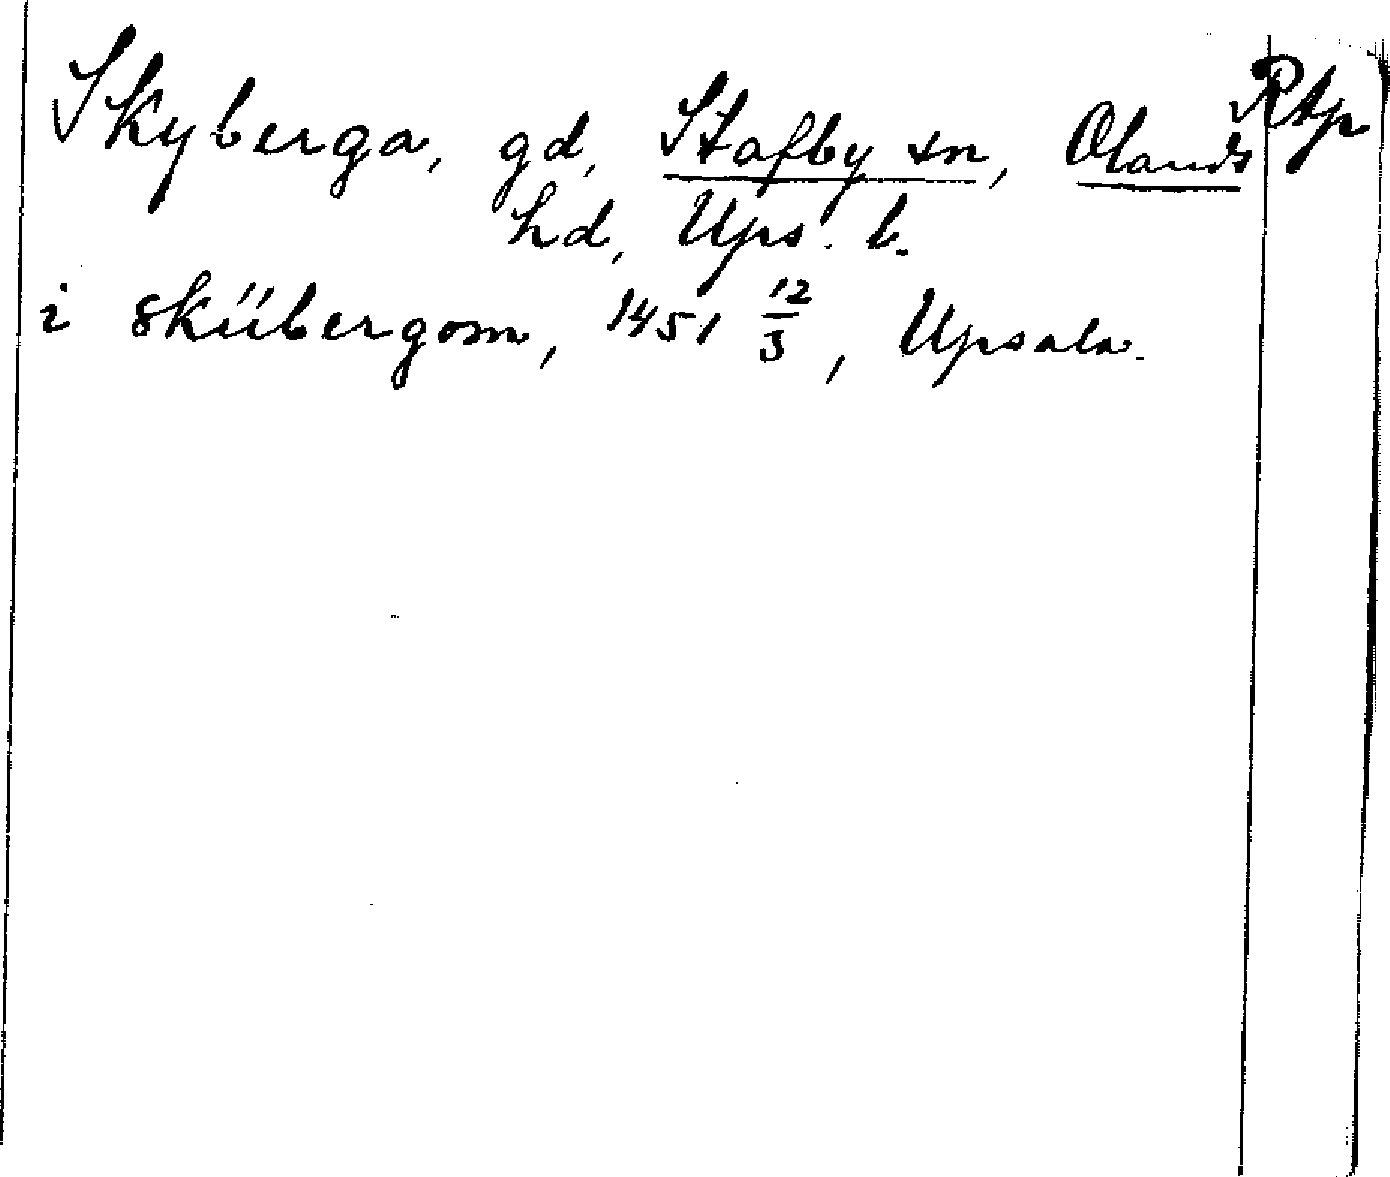 Skyberga, gd, Stafby sn, Olands Rtp
hd, Ups. l.
i skübergom, 1451 12/3, Upsala.